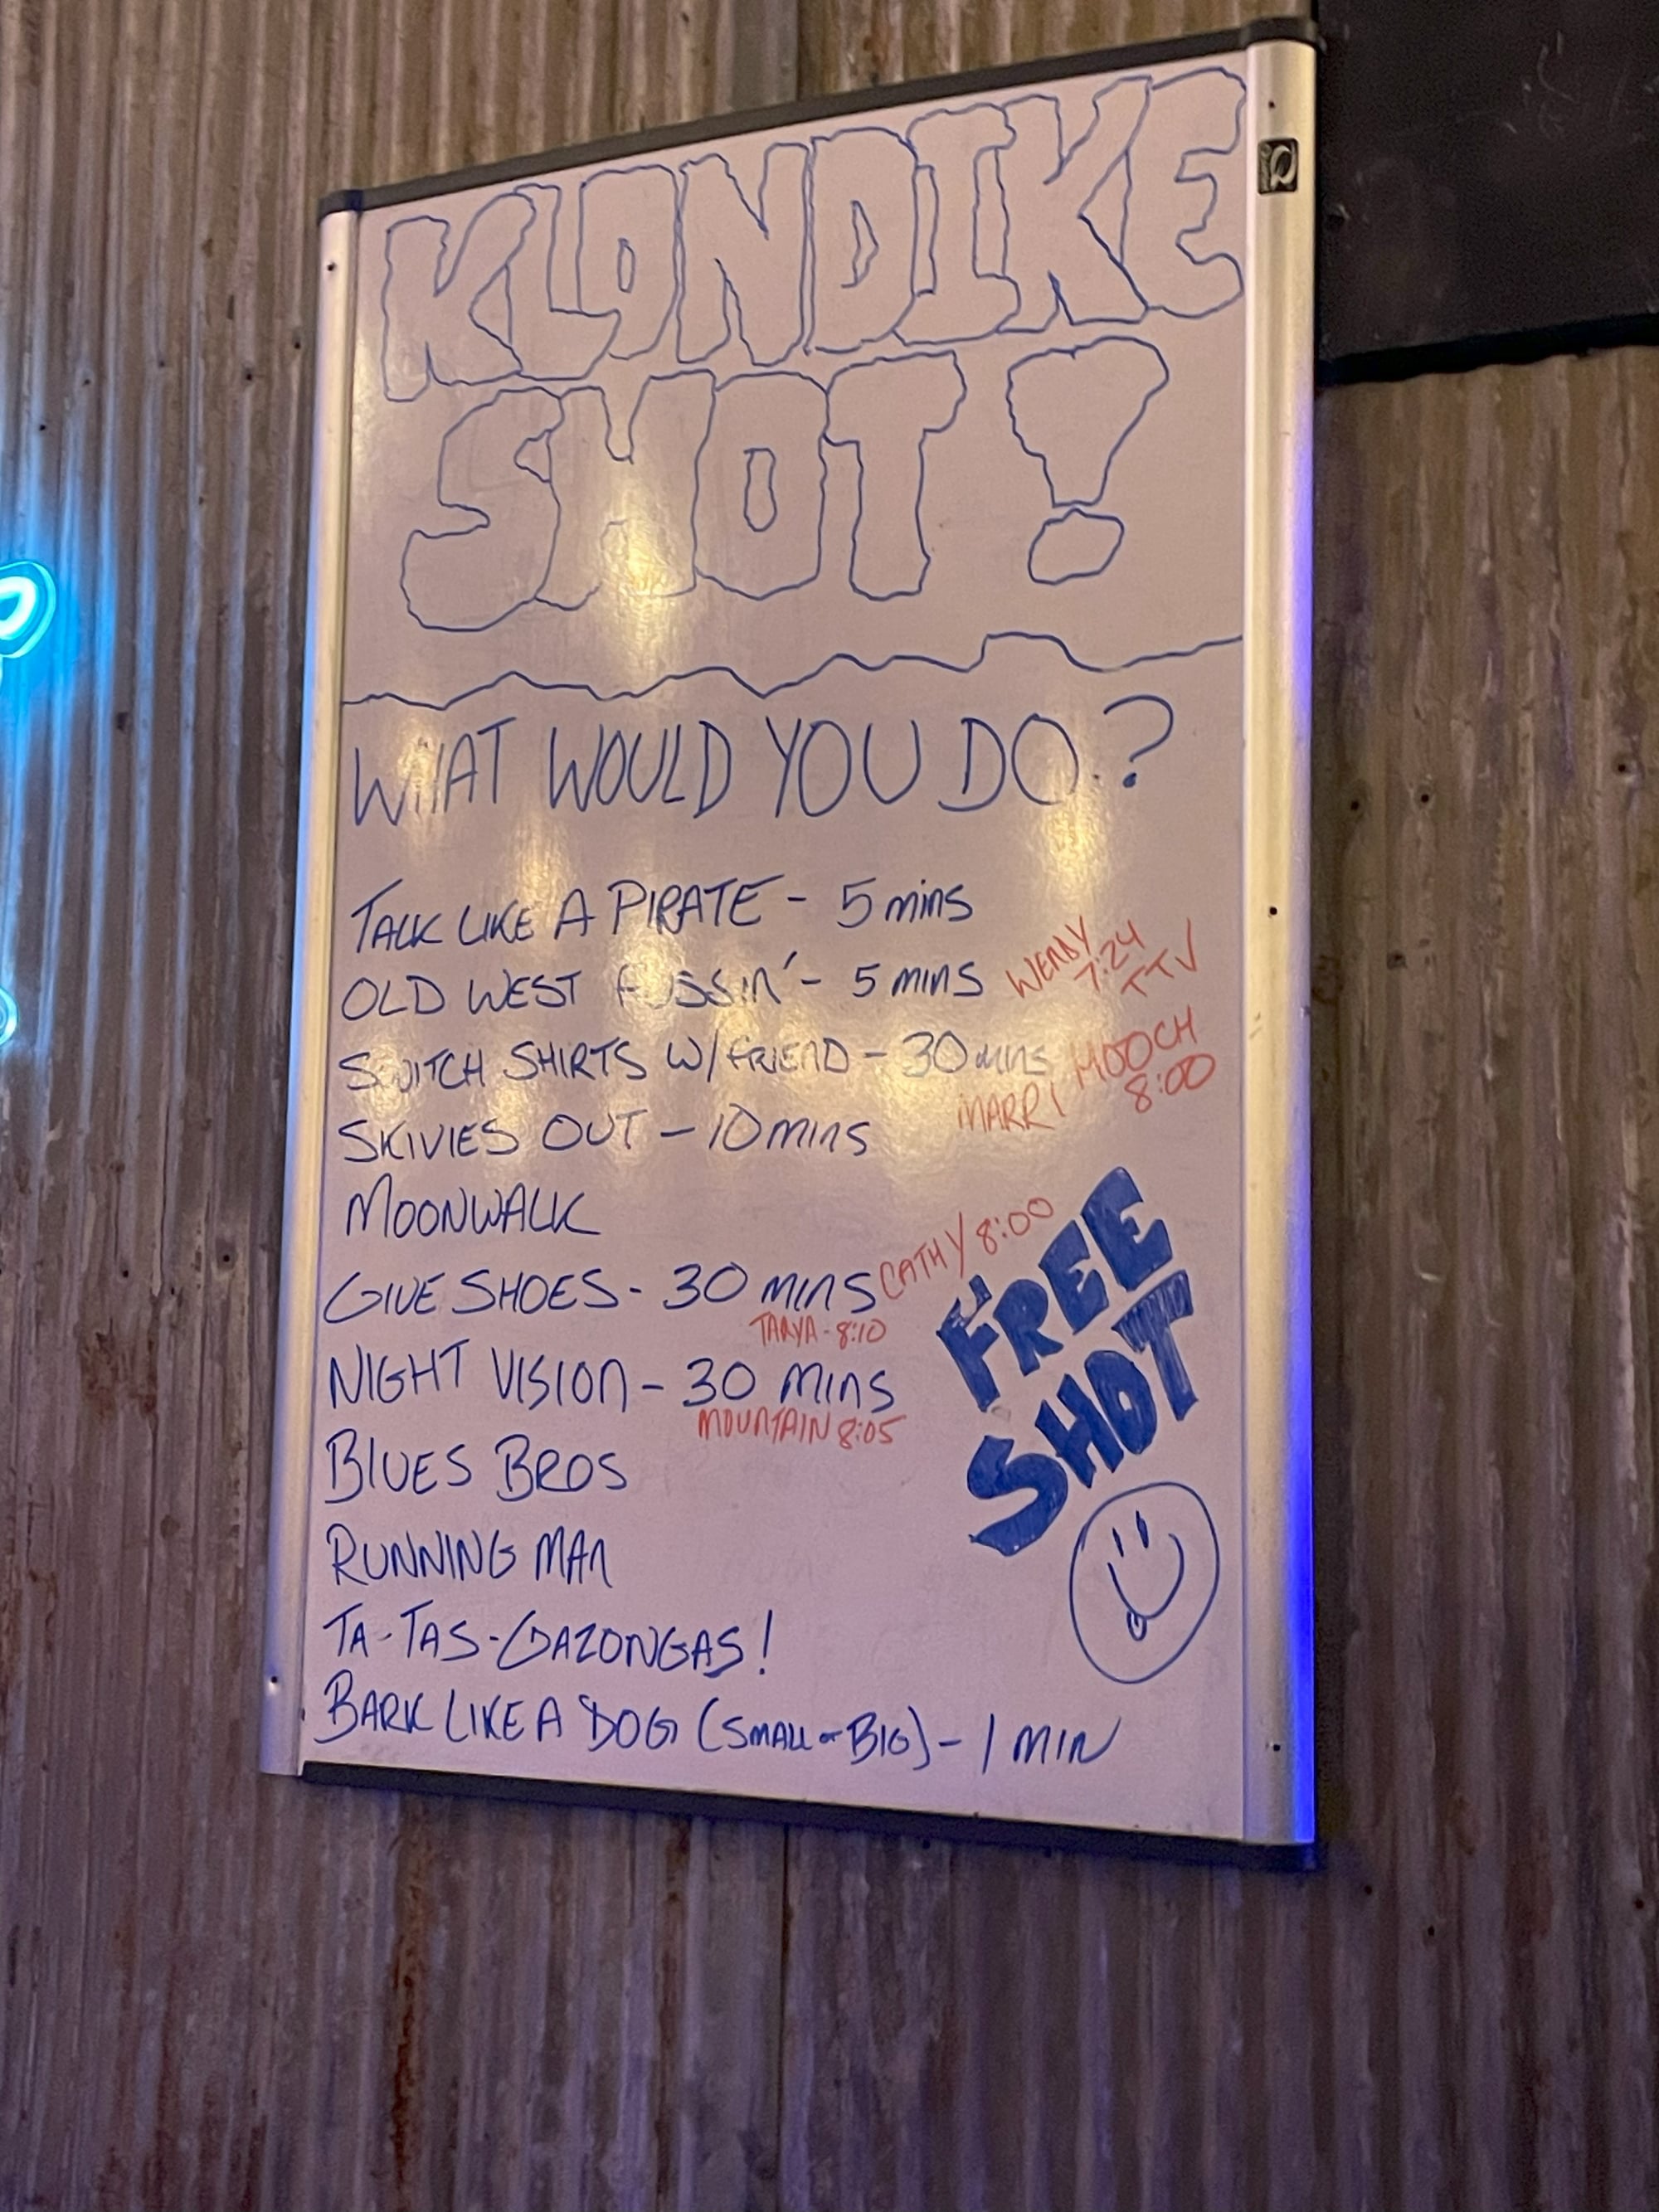 KLONDIKE
SHOT!
WHAT WOULD YOU DO?
TALK LIKE A PIRATE - 5 mins
OLD WEST FUSSIN' - 5 MINS
WENDY
7:24
TTV
SWITCH SHIRTS W/FRIEND - 30 MINS
MARRI MOOCH
8:00
SKIVIES OUT - 10 MINS
MOONWALK
GIVE SHOES - 30 MINS
CATHY 8:00
TANYA - 8:10
NIGHT VISION - 30 MINS
MOUNTAIN 8:05
BLUES BROS
RUNNING MAN
TA-TAS-GAZONGAS!
BARK LIKE A DOG (SMALL or BIG) - 1 MIN
FREE
SHOT